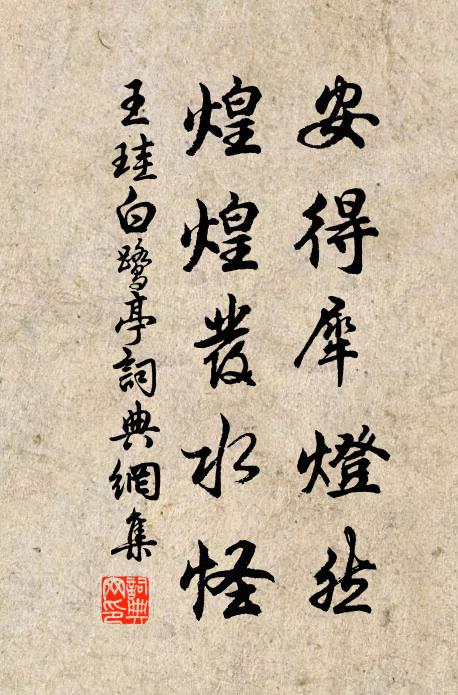 安得犀燈然
煌煌發水怪
王珪白鷺亭詞典網集
詞典網印